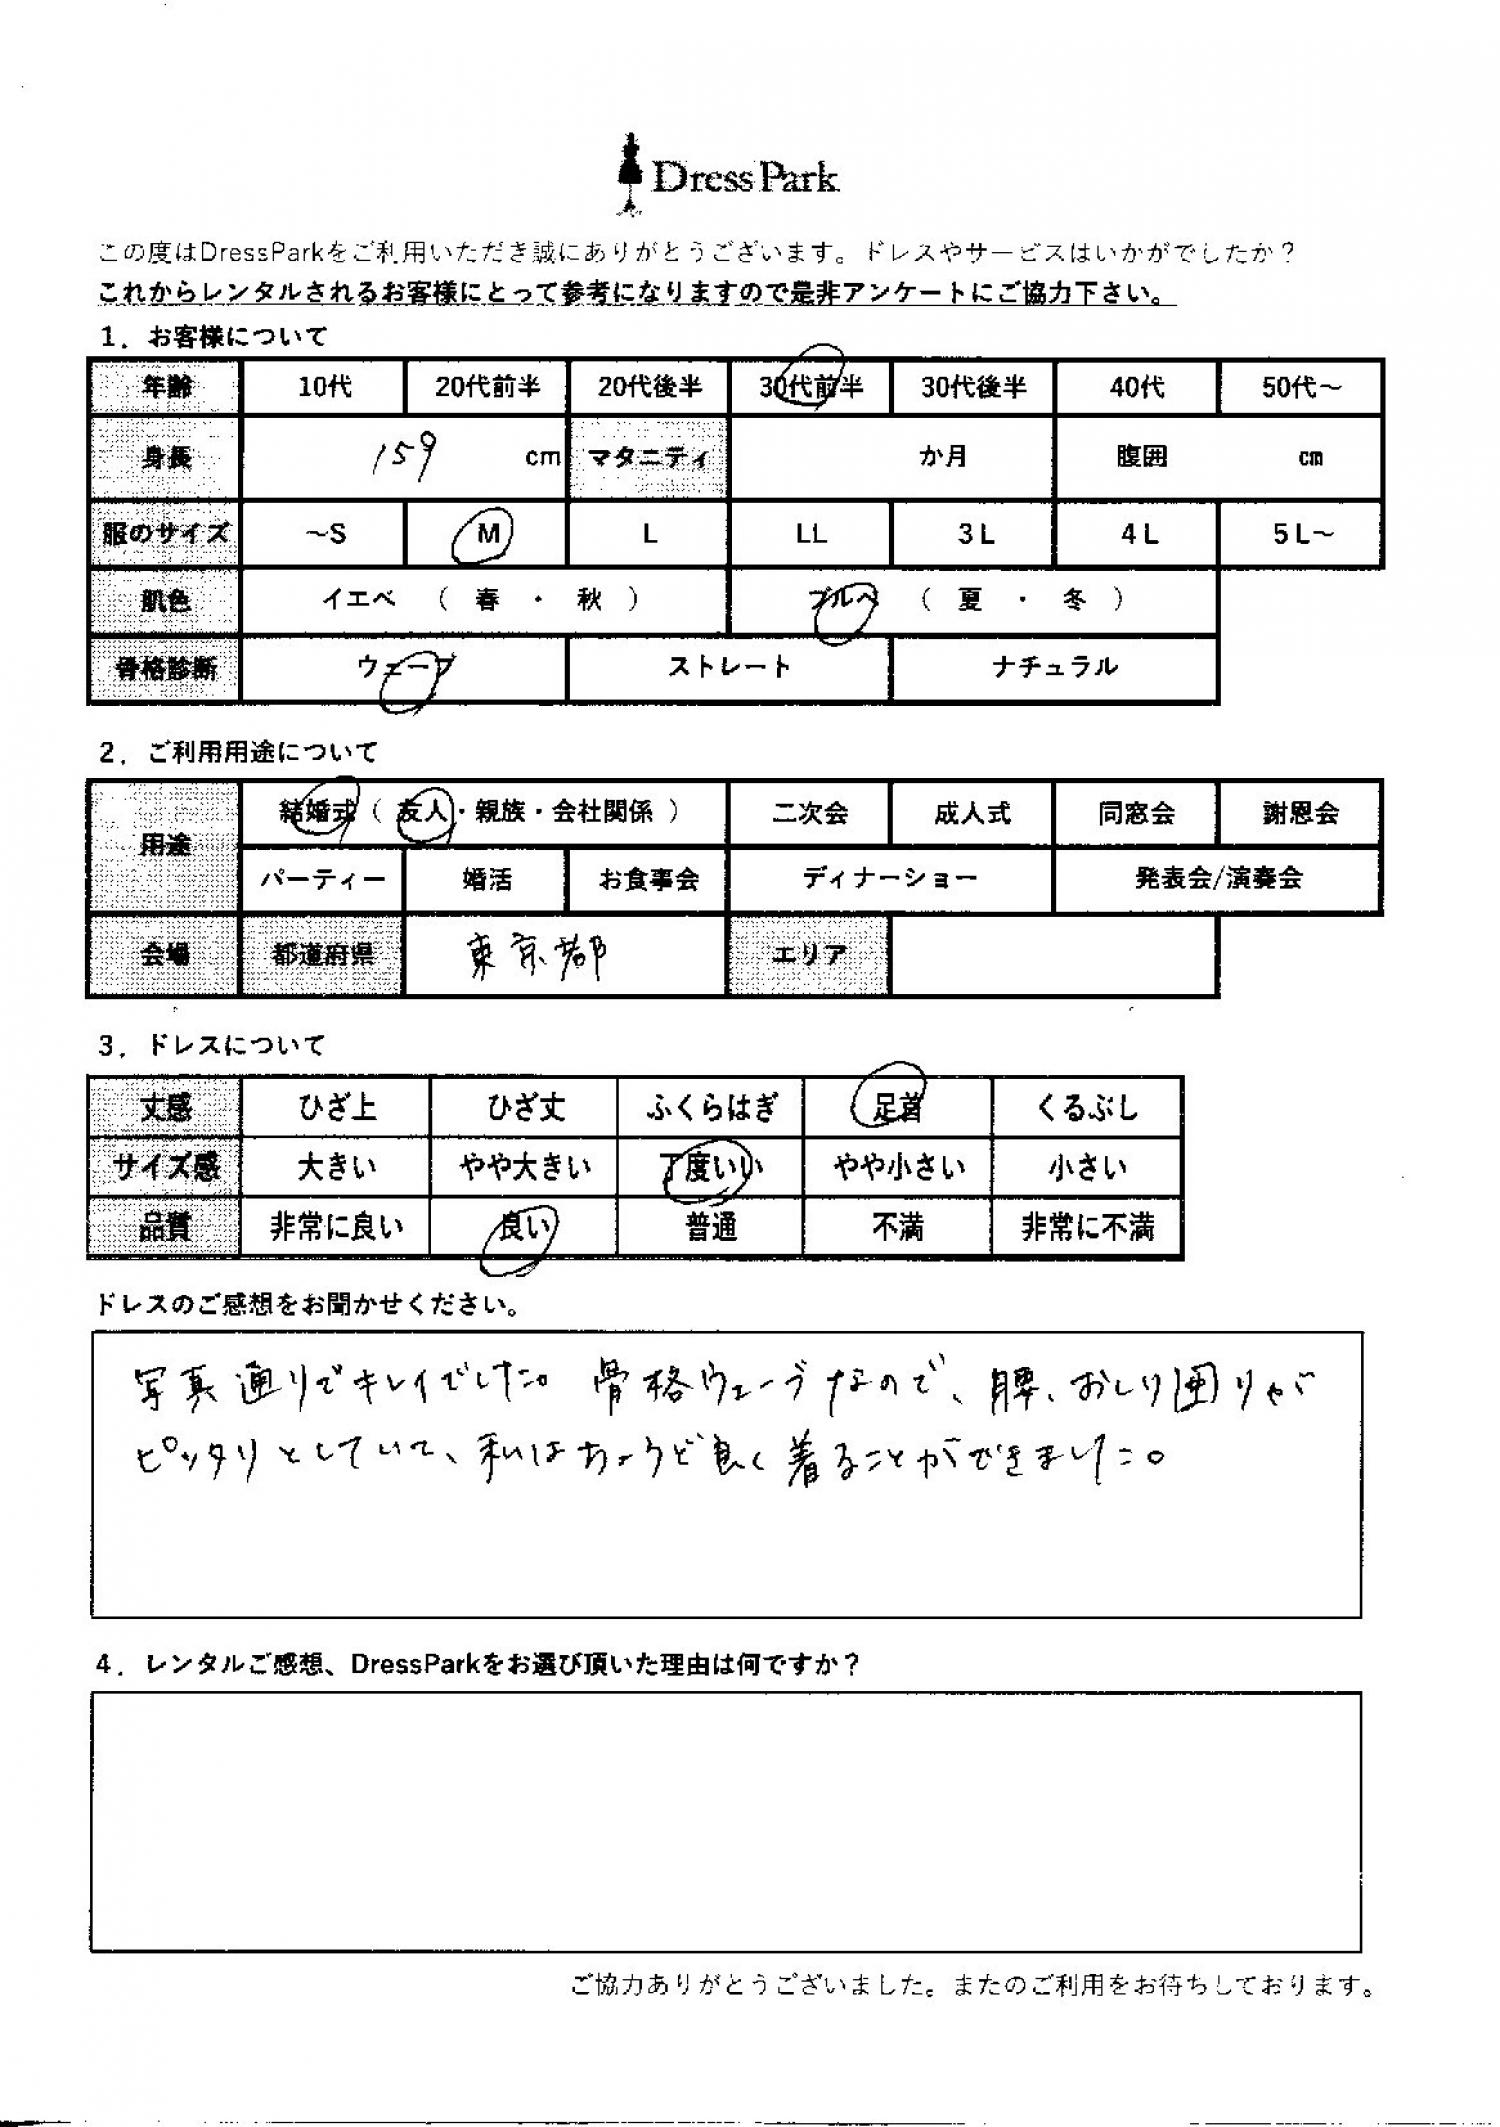 Dress Park
この度はDressParkをご利用いただき誠にありがとうございます。ドレスやサービスはいかがでしたか？
これからレンタルされるお客様にとって参考になりますので是非アンケートにご協力下さい。
1．お客様について
年齢 10代 20代前半 20代後半 30代前半 30代後半 40代 50代～
身長 159 cm マタニティ か月 腹囲 cm
服のサイズ ～S M L LL 3L 4L 5L～
肌色 イエベ （ 春 ・ 秋 ） ブルベ （ 夏 ・ 冬 ）
骨格診断 ウェーブ ストレート ナチュラル
2．ご利用用途について
用途 結婚式（ 友人・親族・会社関係 ） 二次会 成人式 同窓会 謝恩会
パーティー 婚活 お食事会 ディナーショー 発表会/演奏会
会場 都道府県 東京都 エリア
3．ドレスについて
丈感 ひざ上 ひざ丈 ふくらはぎ 足首 くるぶし
サイズ感 大きい やや大きい 丁度いい やや小さい 小さい
品質 非常に良い 良い 普通 不満 非常に不満
ドレスのご感想をお聞かせください。
写真通りでキレイでした。骨格ウェーブなので、腰、おしり囲りが
ピッタリとしていて、私はちょうど良く着ることができました。
4．レンタルご感想、DressParkをお選び頂いた理由は何ですか？
ご協力ありがとうございました。またのご利用をお待ちしております。